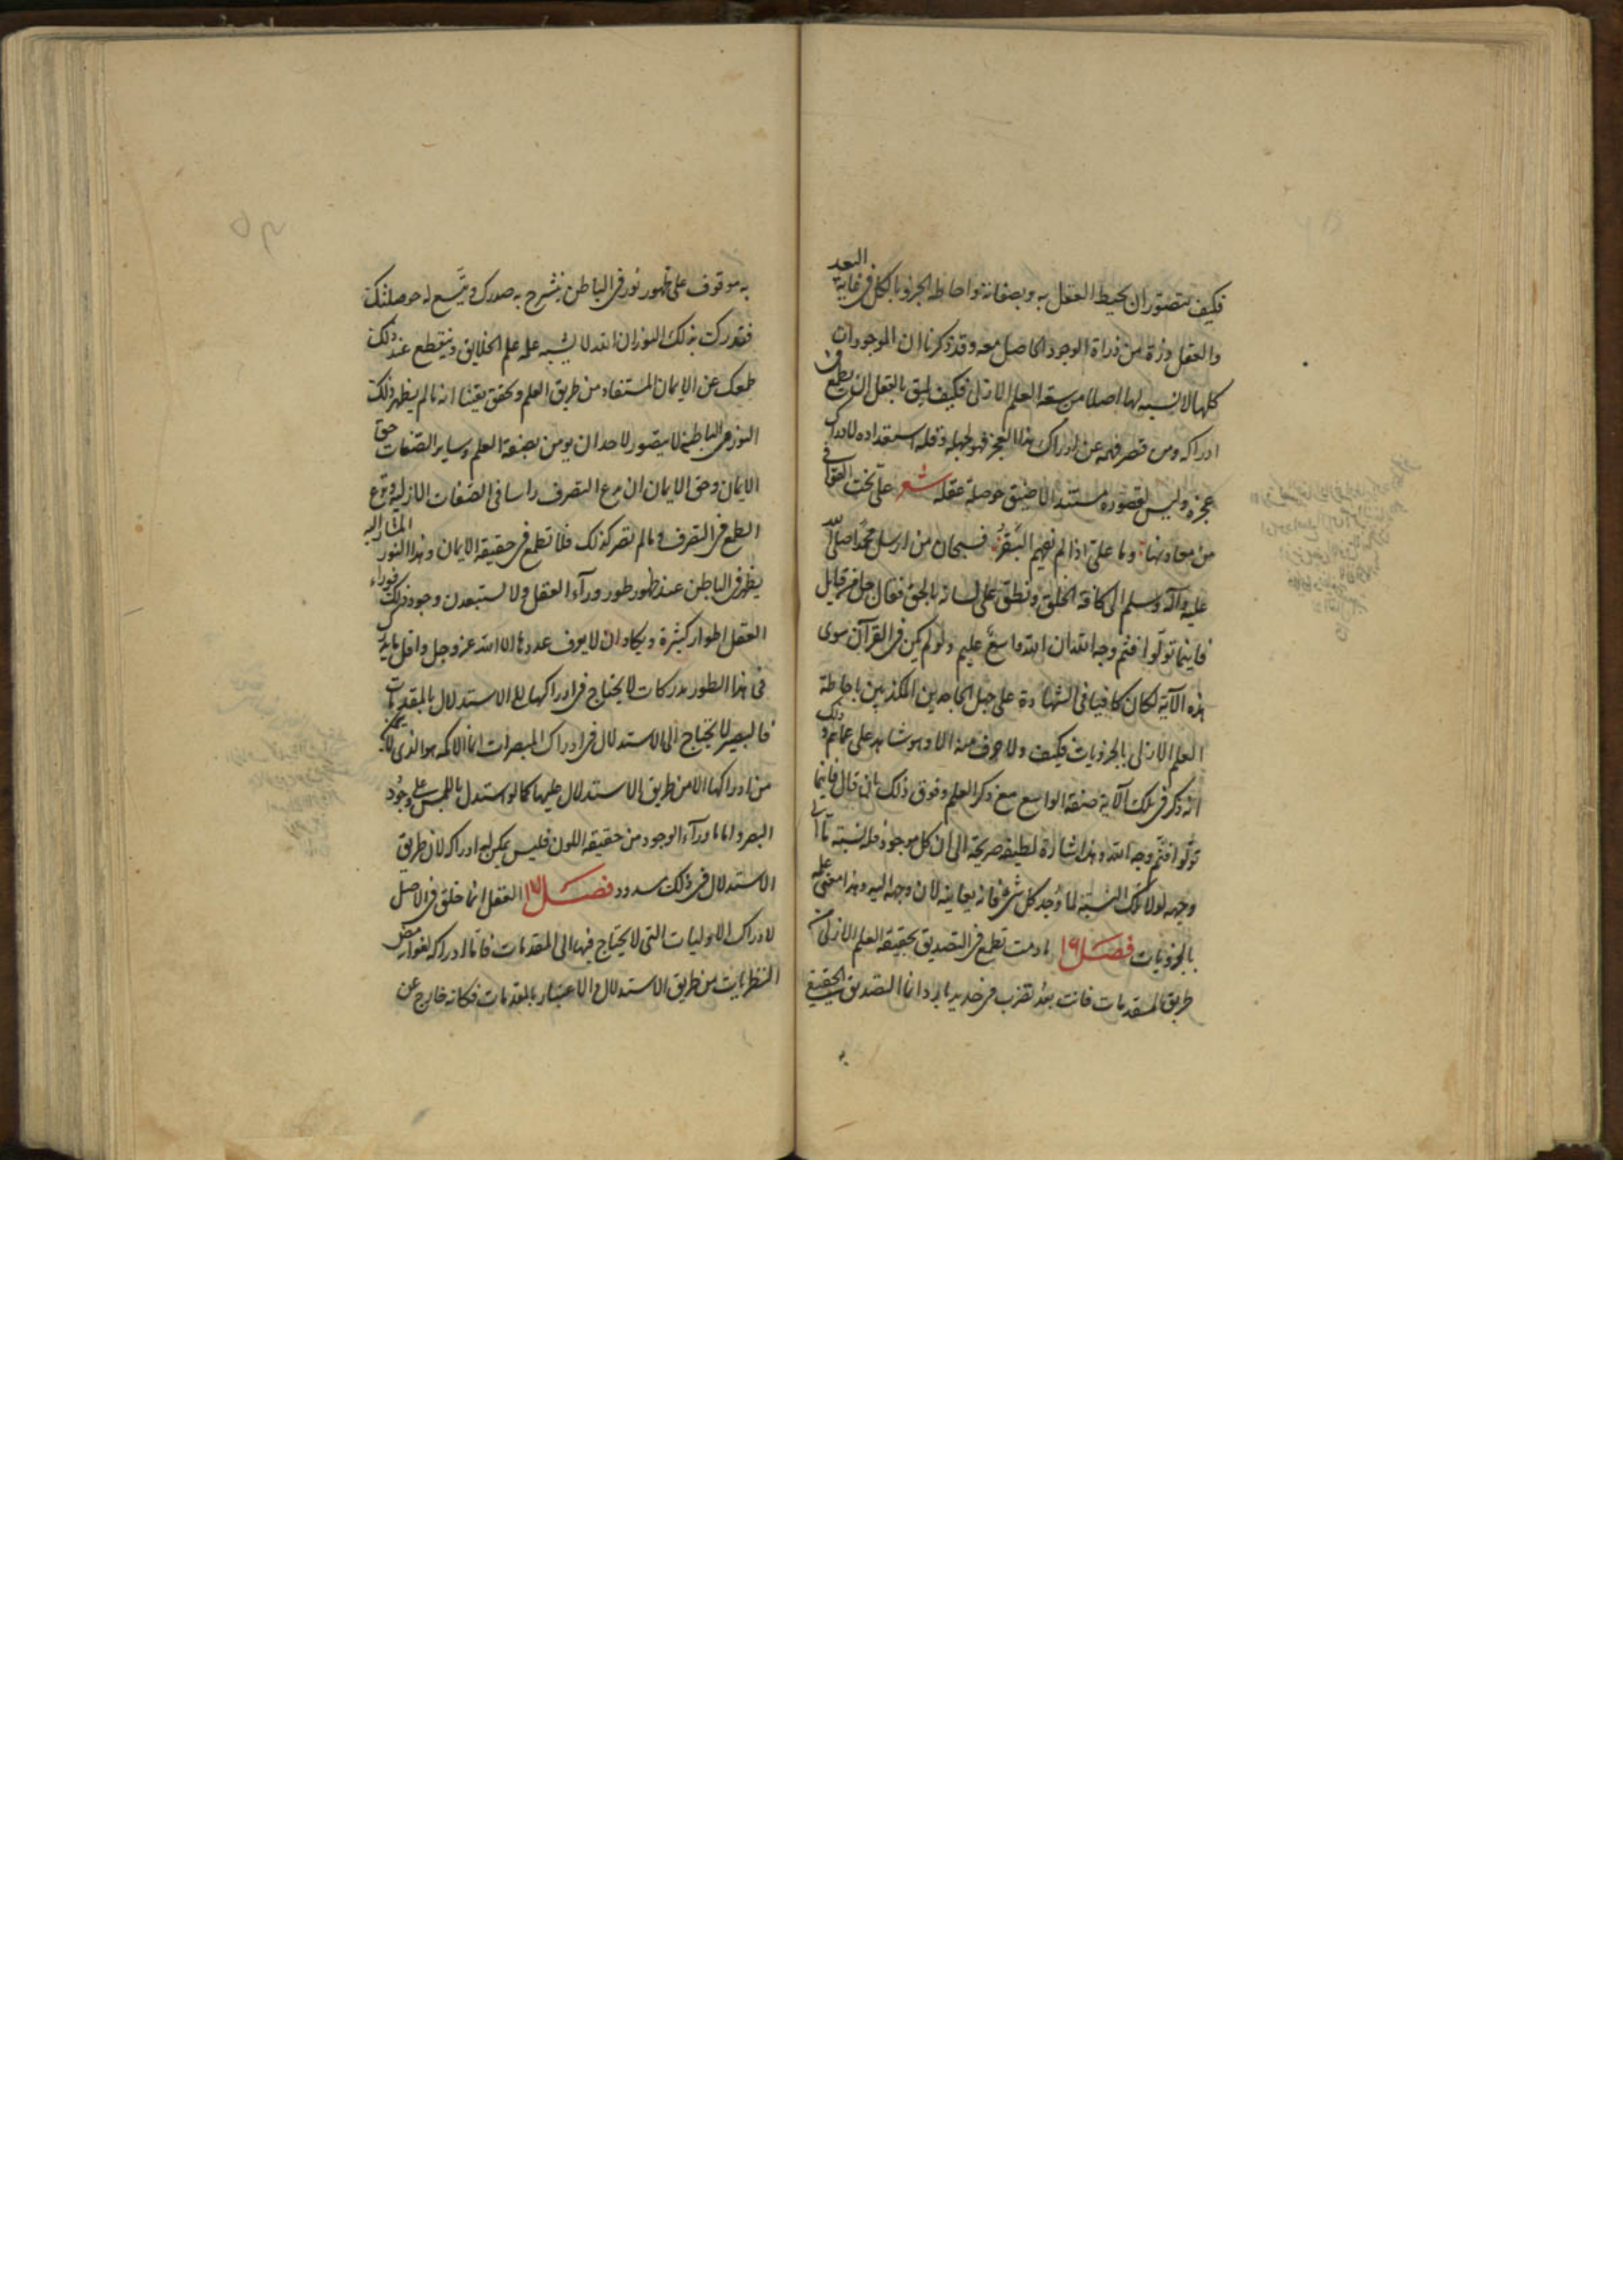 فكيف يتصور ان يحيط العقل به وبصفاته واحاطة الجزو بالكل فى غاية البعد
والعقل ذرة من ذراة الوجود الحاصل معه وقد ذكرنا ان الموجودات
كلها لا نسبة لها اصلا من سعة العلم الازلى فكيف يليق بالعقل ان يطمع فى
ادراكه ومن قصر فهمه عن ادراك هذا العجز فهو لجهله وقلة استعداده لادراك
عجزه وليس لقصوره مستند الا ضيق حوصلة عقله شعر علىّ نحت القوافى
من معادنها وما علىّ اذا لم تفهم البقر فسبحان من ارسل محمدا صلى الله
عليه وآله وسلم الى كافة الخلق ونطق على لسانه بالحق فقال جل من قايل
فاينما تولوا فثم وجه الله ان الله واسع عليم ولو لم يكن فى القرآن سوى
هذه الآية لكان كافيا فى الشهادة على جهل الجاحدين المكذبين باحاطة
العلم الازلى بالجزويات فكيف ولا حرف منه الا وهو شاهد على عماهم ذلك
انه ذكر فى تلك الآية صفة الواسع مع ذكر العلم وفوق ذلك بان قال فاينما
تولوا فثم وجه الله وهذا اشارة لطيفة صريحة الى ان كل موجود فله نسبة ما الى
وجهه لولا تلك النسبة لما وجد كل شى فانه يعاينه لان وجهه اليه وهذا معنى علمه
بالجزويات فصل ١٦ ما دمت تطمع فى التصديق بحقيقة العلم الازلى من
طريق المقدمات فانت بعد تضرب فى حديد بارد انما التصديق الحقيقى
به
به موقوف على ظهور نور فى الباطن ينشرح به صدرك ويتسع له حوصلتك
فتدرك بذلك النور ان الله لا يشبه علمه علم الخلايق وينقطع عند ذلك
طمعك عن الايمان المستفاد من طريق العلم وتحقق يقينا انه ما لم يظهر ذلك
النور فى الباطن لا يتصور لاحد ان يومن بصفة العلم وساير الصفات حق
الايمان وحق الايمان ان يدع التصرف راسا فى الصفات الازلية ويدع
الطمع فى التصرف وما لم تصر كذلك فلا تطمع فى حقيقة الايمان وهذا النور المشار اليه
يظهر فى الباطن عند ظهور طور ورآء العقل ولا تستبعدن وجود ذلك فوراء
العقل اطوار كثيرة ويكاد ان لا يعرف عددها الا الله عز وجل واقل ما يدرك
فى هذا الطور مدركات لا يحتاج فى ادراكها الى الاستدلال بالمقدمات
فالبصير لا يحتاج الى الاستدلال فى ادراك المبصرات انما الاكمه هو الذى لا يمكنه
من ادراكها الا من طريق الاستدلال عليها كما لو استدل باللمس على وجود
البصر واما ما ورآء الوجود من حقيقة اللون فليس يمكن له ادراكه لان طريق
الاستدلال فى ذلك مسدود فصل ١٧ العقل انما خلق فى الاصل
لادراك الاوليات التى لا يحتاج فيها الى المقدمات فاما ادراكه لغوامض
النظريات من طريق الاستدلال والاعتبار بالمقدمات فكانه خارج عن